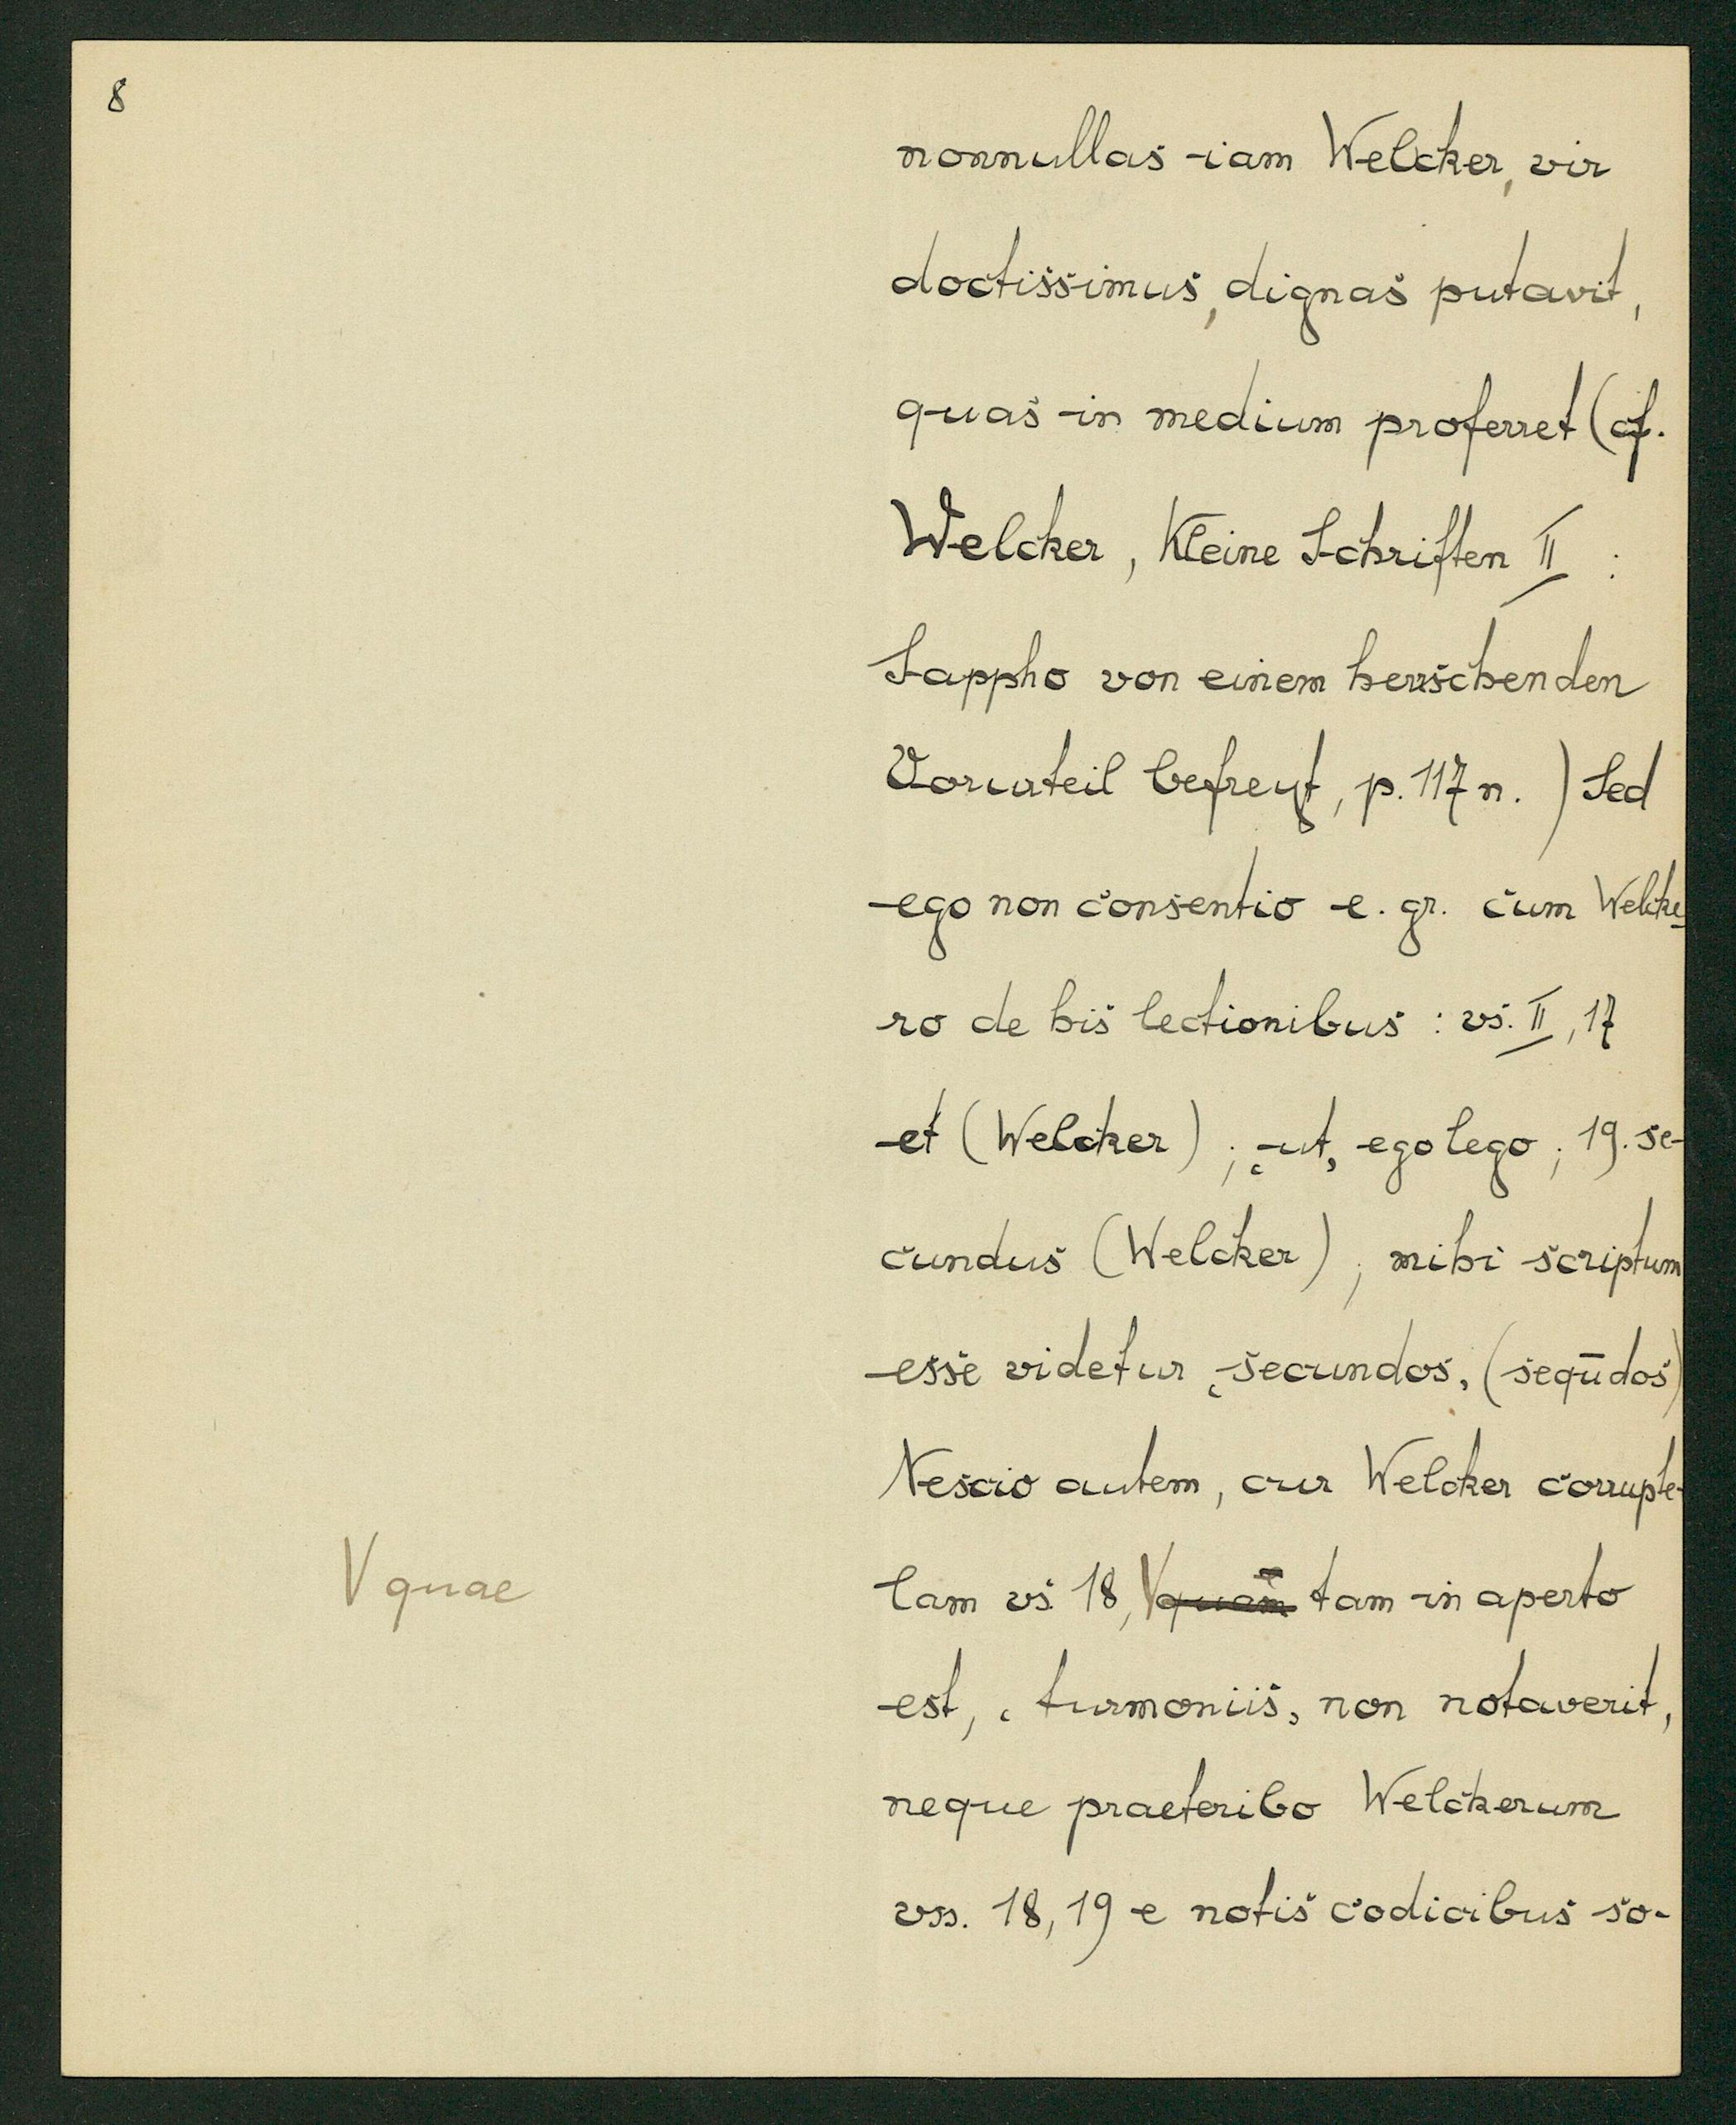 8
nonnullas iam Welcker, vir
doctissimus, dignas putavit,
quas in medium proferret (cf.
Welcker, Kleine Schriften II :
Sappho von einem herrschenden
Vorurteil befreyt, p. 117 n. ) Sed
ego non consentio e. gr. cum Welcke-
ro de his lectionibus : vs. II, 17
et (Welcker) ; ‘ut, ego lego ; 19. se-
cundus (Welcker) ; mihi scriptum
esse videtur ‘secundos, (seqūdos)
Nescio autem, cur Welcker corrupte-
V quae
lam vs. 18, V quam tam in aperto
est, ‘ turmoniis, non notaverit,
neque praeteribo Welckerum
vss. 18, 19 e notis codicibus so-